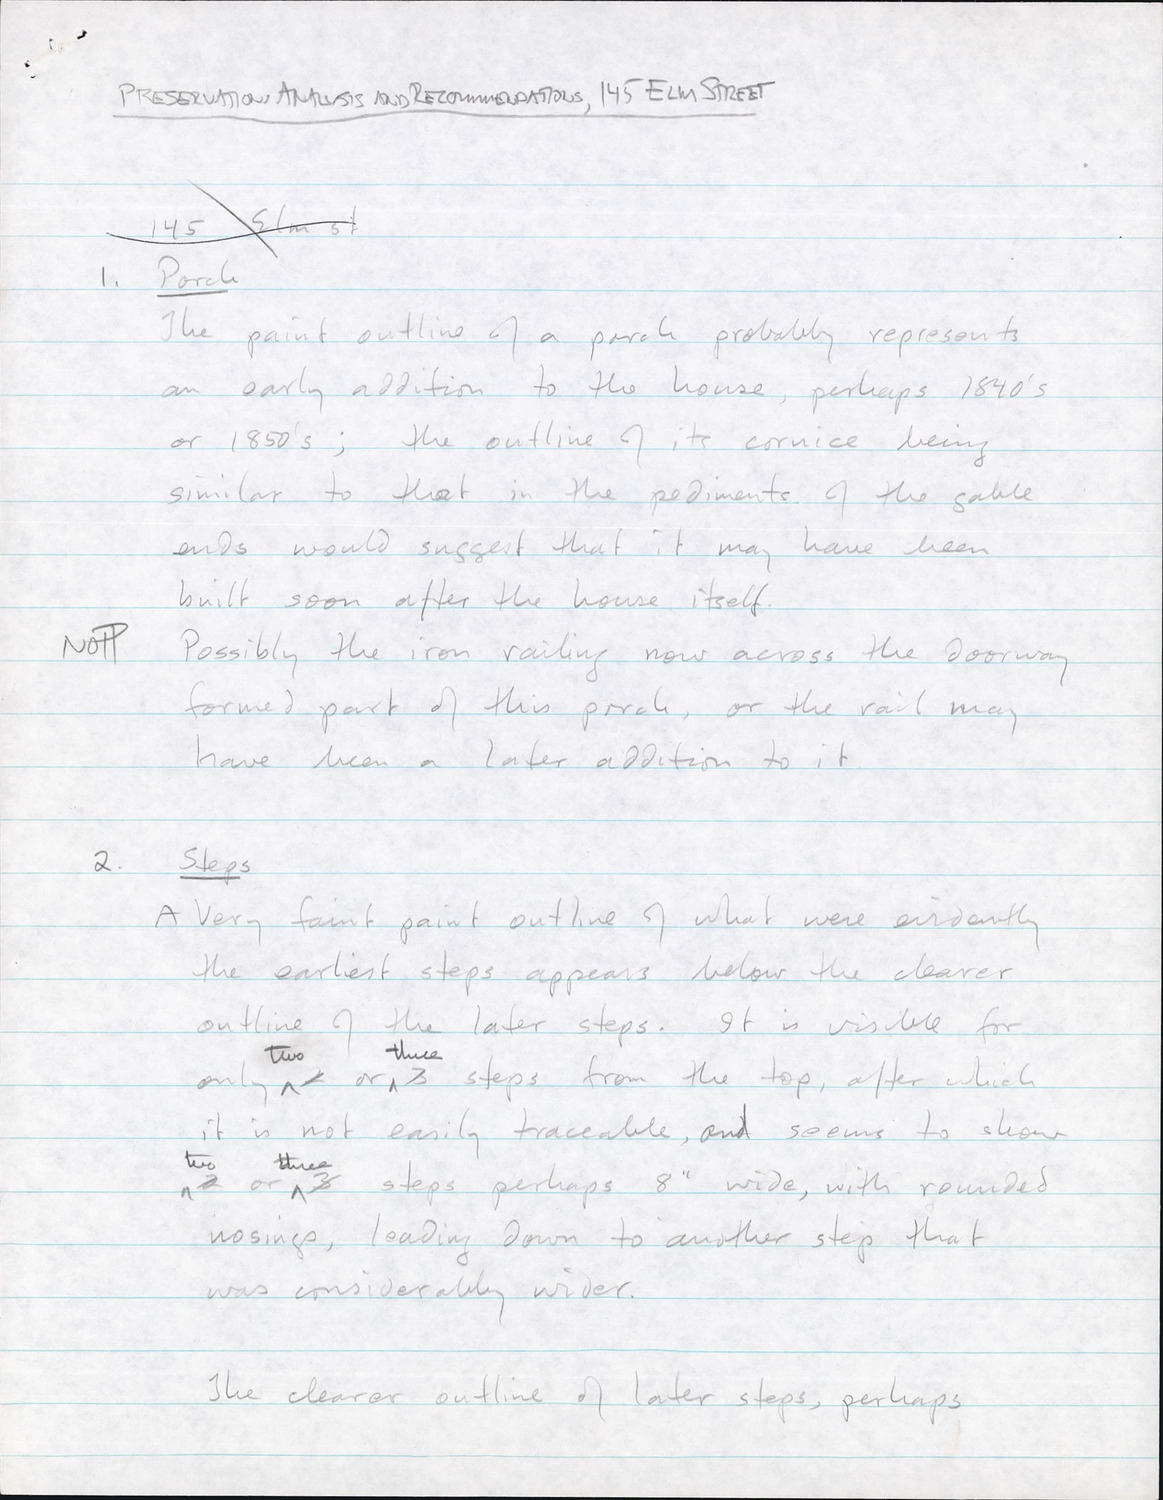 PRESERVATION ANALYSIS AND RECOMMENDATIONS, 145 ELM STREET
145 Elm st
1. Porch
The paint outline of a porch probably represents
an early addition to the house, perhaps 1840's
or 1850's; the outline of its cornice being
similar to that in the pediments of the gable
ends would suggest that it may have been
built soon after the house itself.
NO ¶ Possibly the iron railing now across the doorway
formed part of this porch, or the rail may
have been a later addition to it.
2. Steps
A Very faint paint outline of what were evidently
the earliest steps appears below the clearer
outline of the later steps. It is visible for
two three
only 2 or 3 steps from the top, after which
it is not easily traceable, and seems to show
two three
2 or 3 steps perhaps 8" wide, with rounded
nosings, leading down to another step that
was considerably wider.
The clearer outline of later steps, perhaps